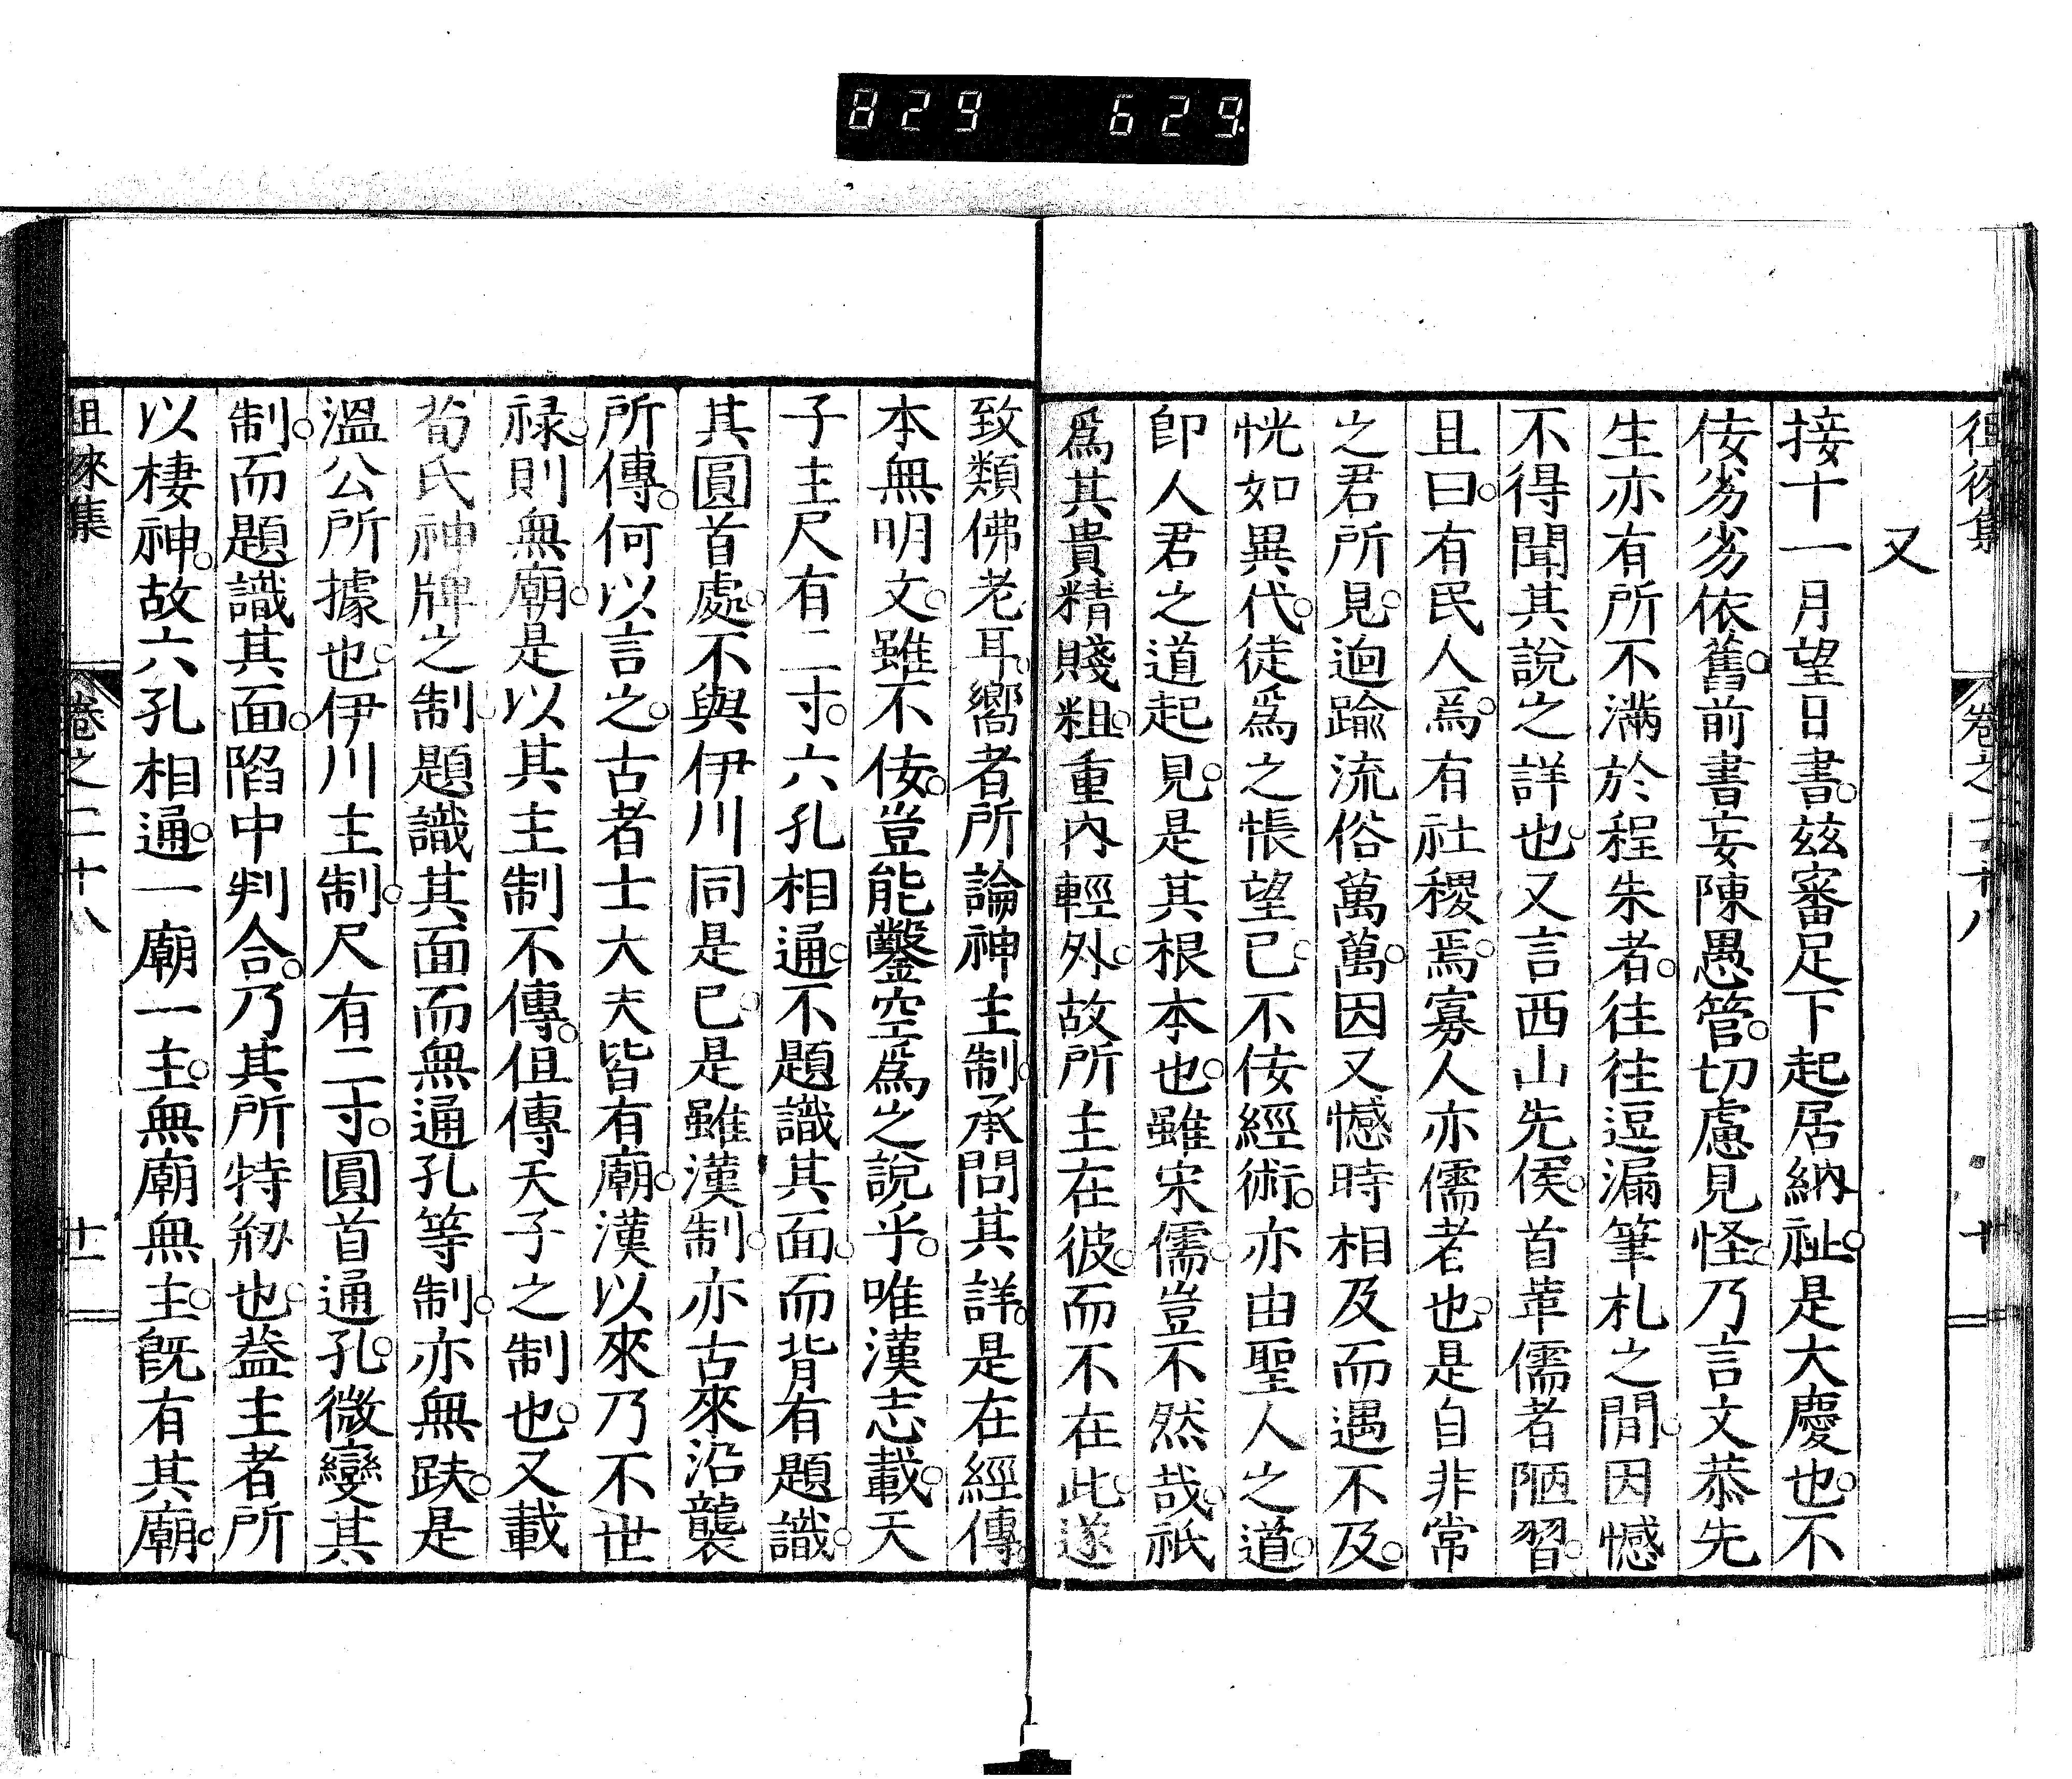 829 629
徂徠集 卷之二十八 十
又
接十一月望日書。玆審足下起居納祉。是大慶也。不
佞劣劣依舊。前書妄陳愚管。切慮見怪。乃言文恭先
生亦有所不滿於程朱者。往往逗漏筆札之閒。因憾
不得聞其說之詳也。又言西山先侯。首革儒者陋習。
且曰。有民人焉。有社稷焉。寡人亦儒者也。是自非常
之君所見。逈踰流俗萬萬。因又憾時相及而遇不及。
恍如異代。徒爲之悵望已。不佞經術。亦由聖人之道。
卽人君之道起見。是其根本也。雖宋儒。豈不然哉。祇
爲其貴精賤粗。重內輕外。故所主在彼。而不在此。遂
致類佛老耳。嚮者所論神主制。承問其詳。是在經傳。
本無明文。雖不佞。豈能鑿空爲之說乎。唯漢志載。天
子主尺有二寸。六孔相通。不題識其面。而背有題識。
其圓首處。不與伊川同是已。是雖漢制。亦古來沿襲
所傳。何以言之。古者士大夫皆有廟。漢以來乃不世
祿。則無廟。是以其主制不傳。但傳天子之制也。又載
荀氏神牌之制。題識其面而無通孔等制。亦無趺。是
溫公所據也。伊川主制。尺有二寸。圓首通孔。微變其
制。而題識其面。陷中判合。乃其所特剏也。葢主者所
以棲神。故六孔相通。一廟一主。無廟無主。旣有其廟。
徂徠集 卷之二十八 十一